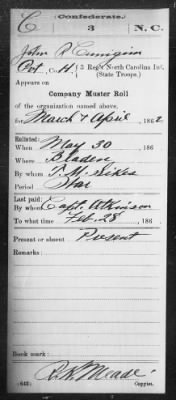 C Confederate. N.C.
3
John R
Pvt, Co. H, 3 Reg't North Carolina Inf.
(State Troops.)
Appears on
Company Muster Roll
of the organization named above,
for March & April, 1862
Enlisted:
When May 30, 186
Where Bladen
By whom T. M. Sikes
Period War
Last paid:
By whom Capt. Atkinson
To what time Feb. 28, 186
Present or absent Present
Remarks:
Book mark:
R. H. Meade
(642) Copyist.